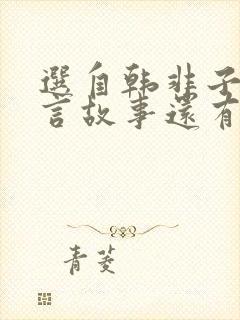 選自韩非子
言故事還有
青菱